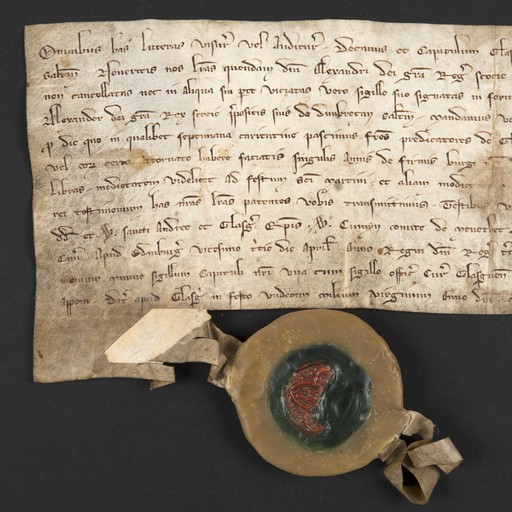 Omnibus has litteras visur' vel auditur' Decanus et Capitulum Glas
salt'm Noveritis nos l'ras quondam d'ni Alexandri dei gr'a Reg' scocie
non cancellatas nec in aliqua sui p'te viciatas vero sigillo suo signatas in form
Alexander dei gr'a Rex scocie p'positis suis de dunbretan salt'm mandamus vo
q' die quo in qualibet septimana caritative pascimus fr'es predicatores de Gl
vel habere faciatis singulis annis de firmis burgi
libras medietatem videlicet ad festum sc'i martini et aliam mediet
rei testimonium has l'ras patentes vobis transmittimus Testibus
et W. sancti Andree et Glasg' Ep'is W. Cumyn comite de meneteth
Canc' apud Edinburg' vicesimo t'cio die april' Anno Regni d'ni Reg'
sigillum Capituli n'ri una cum sigillo offic' Cur' Glasguen'
appon' Dat' apud Glasg' in festo undecim milium virginum anno d'ni